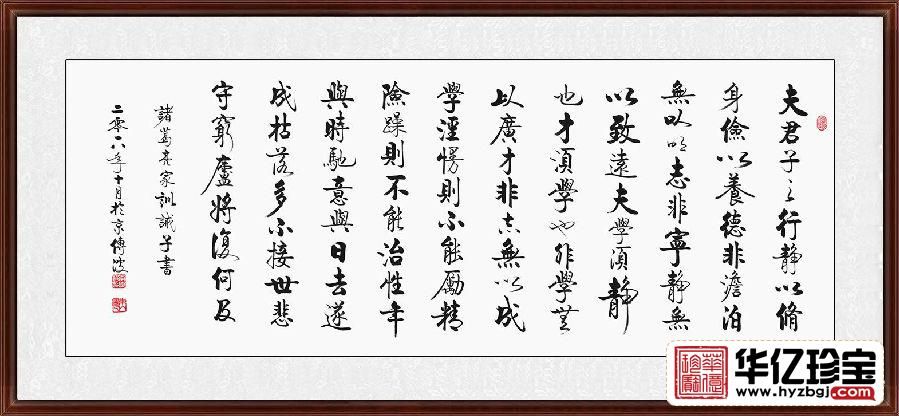 夫君子之行靜以脩
身儉以養德非澹泊
無以明志非寧靜無
以致遠夫學須靜
也才須學也非學無
以廣才非志無以成
學淫慢則不能勵精
險躁則不能治性年
與時馳意與日去遂
成枯落多不接世悲
守窮廬將復何及
諸葛亮家訓誡子書
二零一八年十月於京傅波
华亿珍宝
www.hyzbgj.com